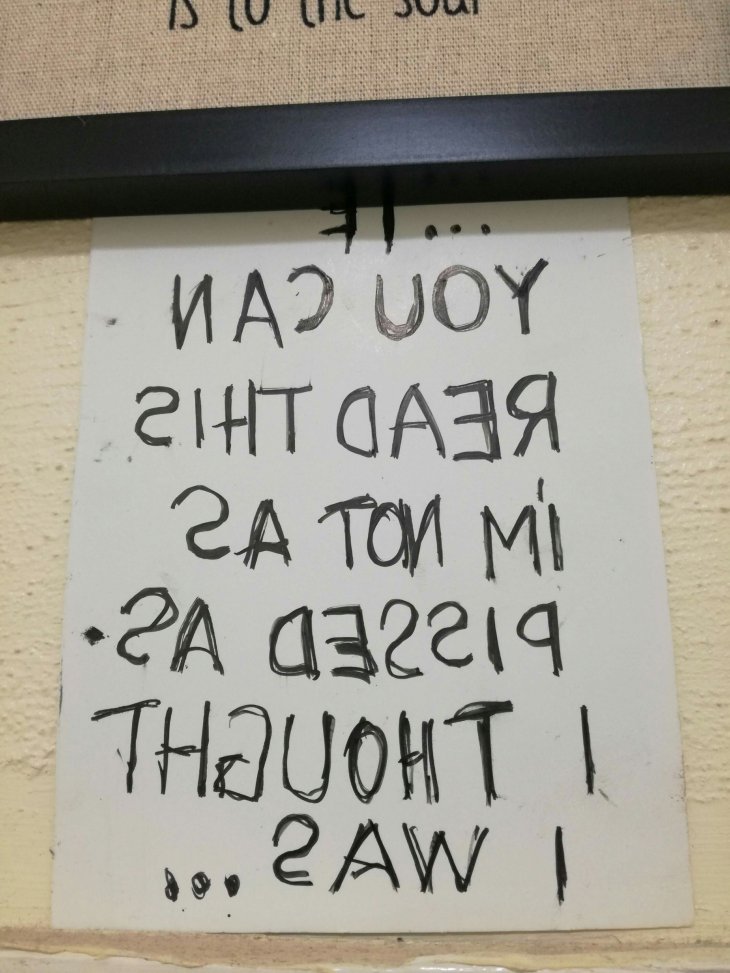 is to the soul
...IF
YOU CAN
READ THIS
I'M NOT AS
PISSED AS
I THOUGHT
I WAS...